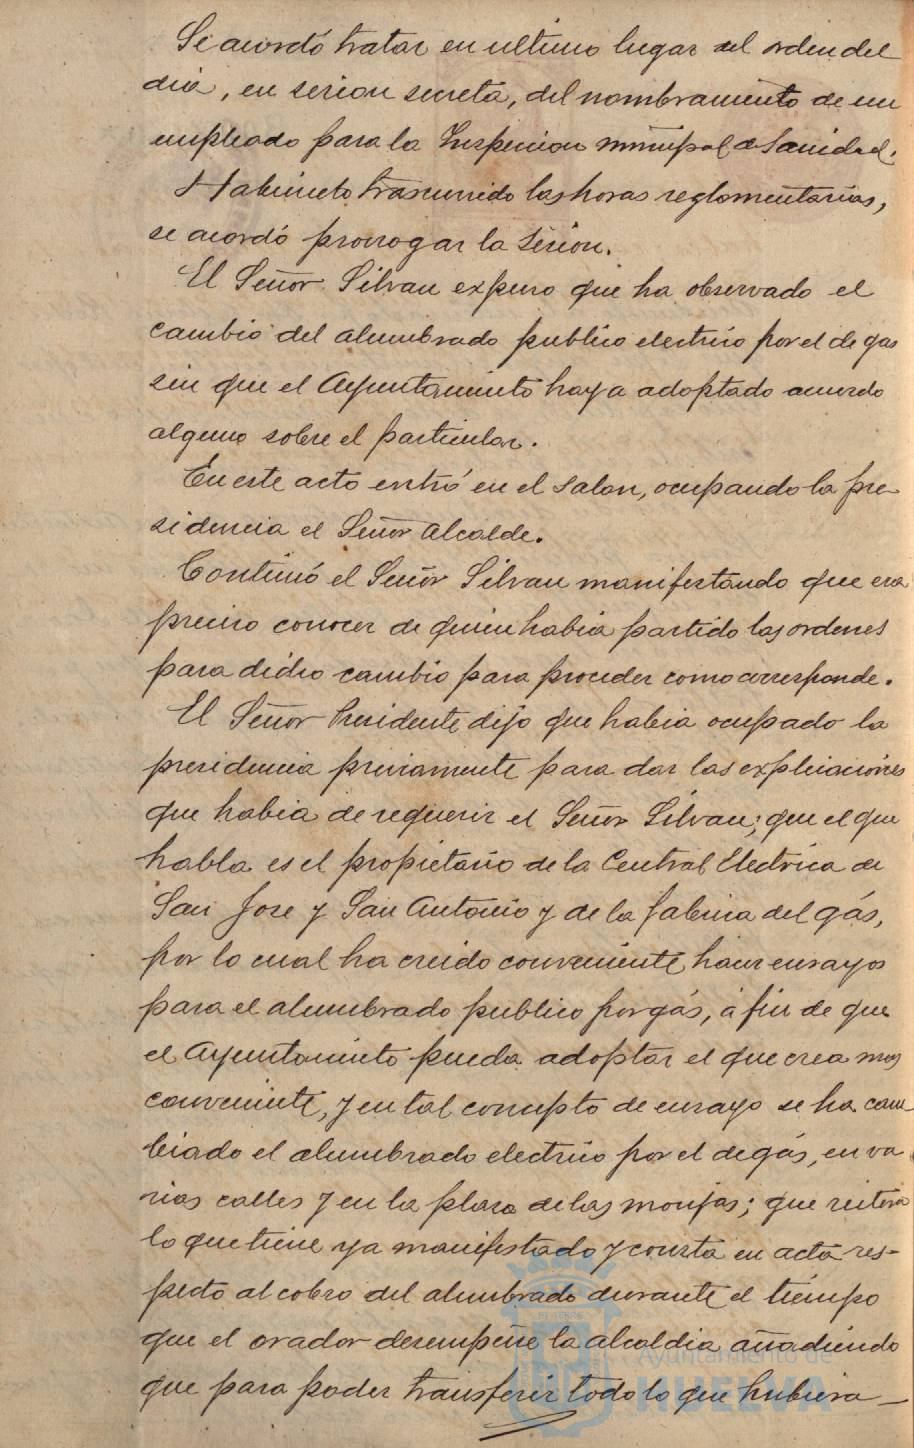 Se acordó tratar en ultimo lugar del orden del
dia, en sesion secreta, del nombramiento de un
empleado para la Inspeccion municipal de Sanidad.
Habiendo trascurrido las horas reglamentarias,
se acordó prorrogar la sesion.
El Señor Silvan expuso que ha observado el
cambio del alumbrado publico electrico por el de gas
sin que el Ayuntamiento haya adoptado acuerdo
alguno sobre el particular.
En este acto entró en el salon, ocupando la pre-
sidencia el Señor Alcalde.
Continuó el Señor Silvan manifestando que era
preciso conocer de quien habia partido las ordenes
para dicho cambio para proceder como corresponde.
El Señor Presidente dijo que habia ocupado la
presidencia previamente para dar las explicaciones
que habia de requerir el Señor Silvan; que el que
habla es el propietario de la Central Electrica de
San Jose y San Antonio y de la fabrica del gás,
por lo cual ha creido conveniente hacer ensayos
para el alumbrado publico por gás, á fin de que
el Ayuntamiento pueda adoptar el que crea mas
conveniente, y en tal concepto de ensayo se ha cam
biado el alumbrado electrico por el de gás, en va
rias calles y en la plaza de las monjas; que reitera
lo que tiene ya manifestado y consta en acta res-
pecto al cobro del alumbrado durante el tiempo
que el orador desempeñe la alcaldia añadiendo
que para poder transferir todo lo que hubiera
Ayuntamiento de
HUELVA